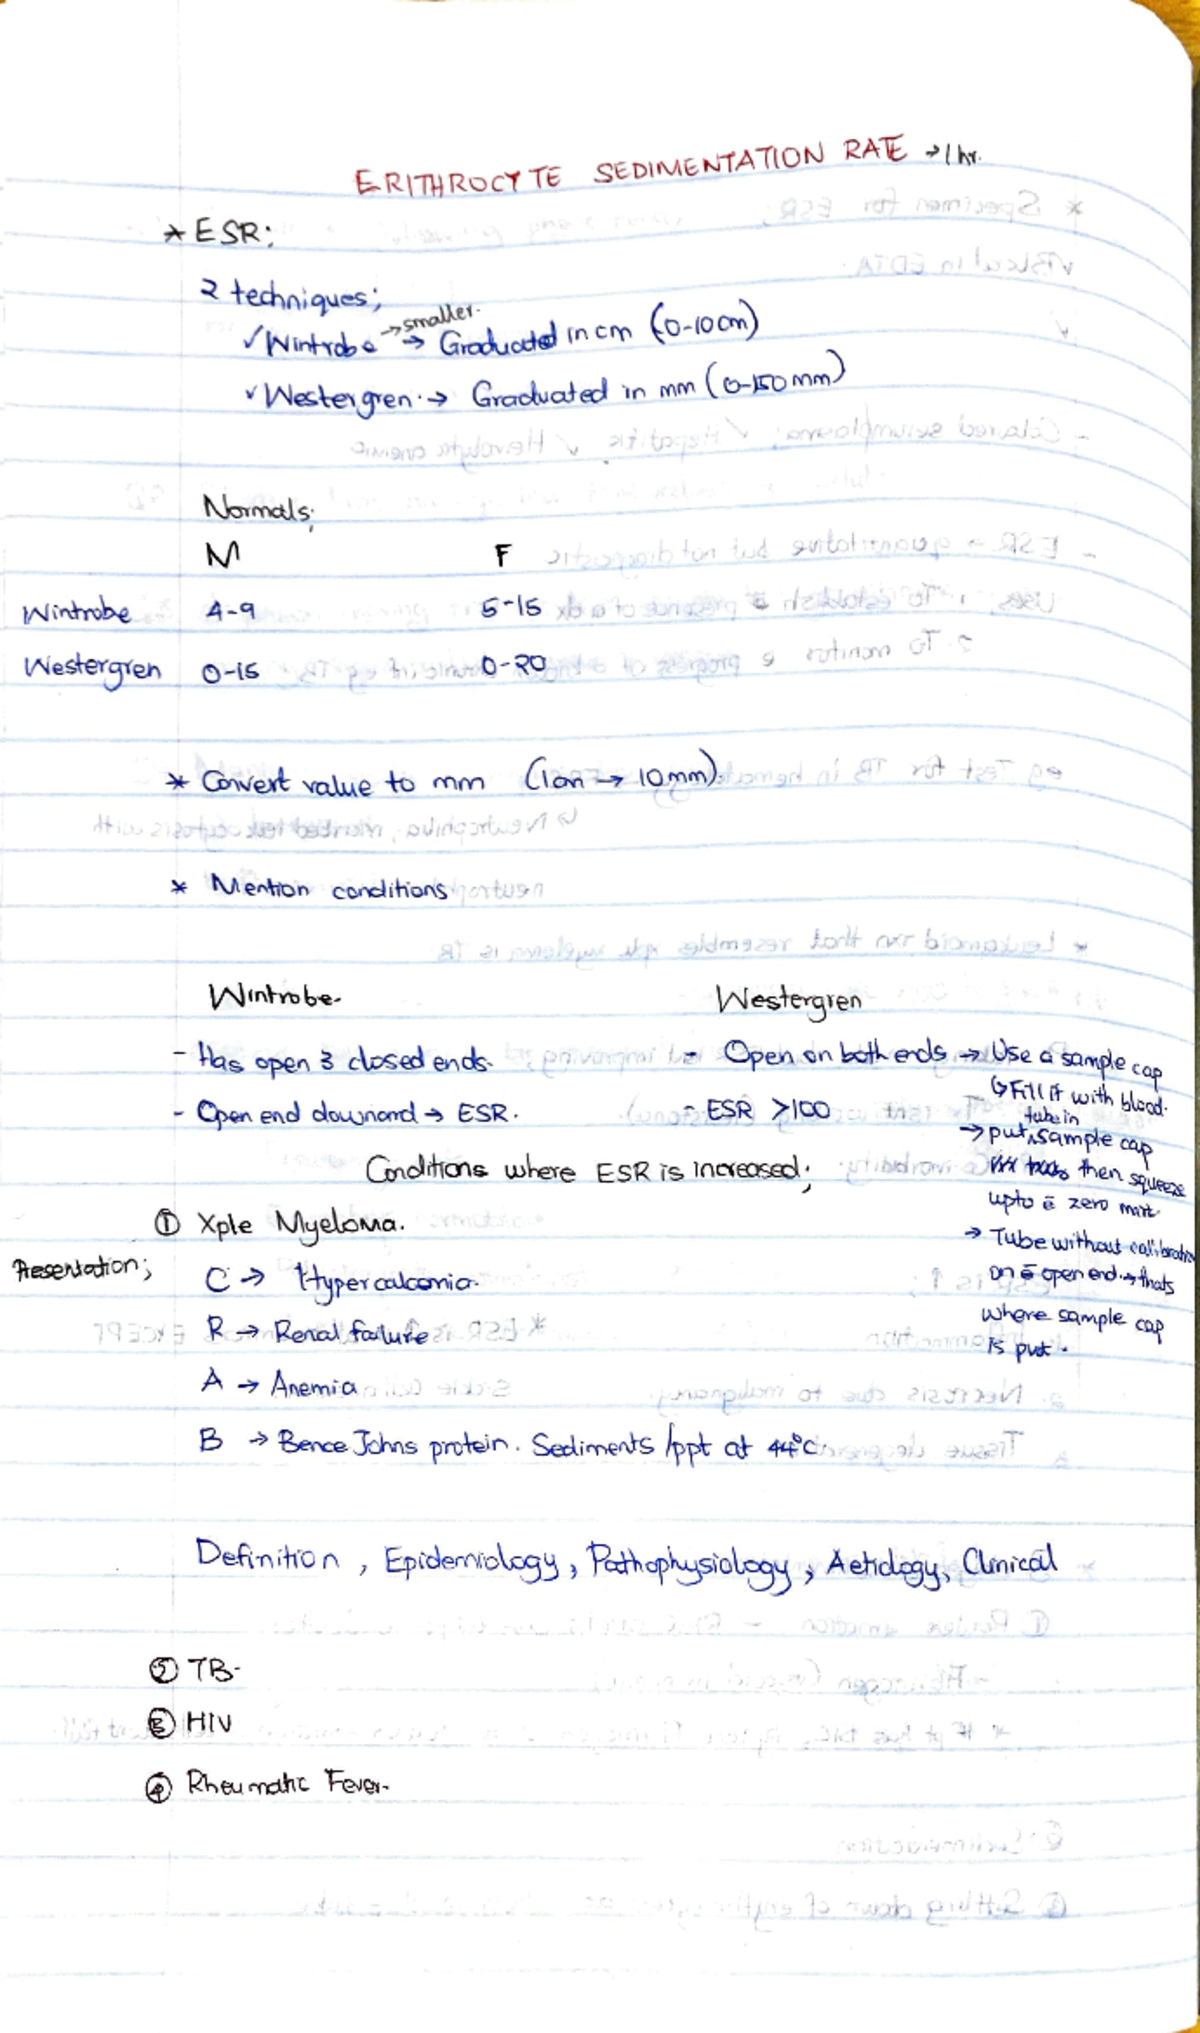 ERITHROCYTE SEDIMENTATION RATE → 1 hr.
* ESR:
2 techniques;
→ smaller.
✓ Wintrobe → Graduated in cm (0-10cm)
✓ Westergren. → Graduated in mm (0-150mm)
Normals;
M F
Wintrobe 4-9 5-15
Westergren 0-15 0-20
* Convert value to mm (1cm → 10mm)
* Mention conditions
Wintrobe. Westergren
- Has open & closed ends. - Open on both ends → Use a sample cap
↳ Fill it with blood.
- Open end downard → ESR. - ESR >100
tube in
→ put sample cap
then squeeze
upto ē zero mark.
→ Tube without calibration
on ē open end. → thats
where sample cap
is put.
Conditions where ESR is increased;
① Xple Myeloma.
Presentation;
C → Hypercalcemia.
R → Renal failure
A → Anemia
B → Bence Johns protein. Sediments /ppt at 44°C
Definition, Epidemiology, Pathophysiology, Aetiology, Clinical
② TB.
③ HIV
④ Rheumatic Fever.